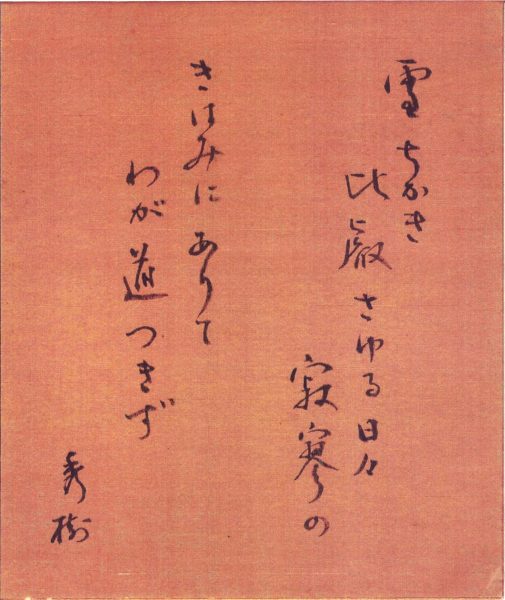 雪ちかき
比叡さゆる日々
寂寥の
きはみにありて
わが道つきず
秀樹